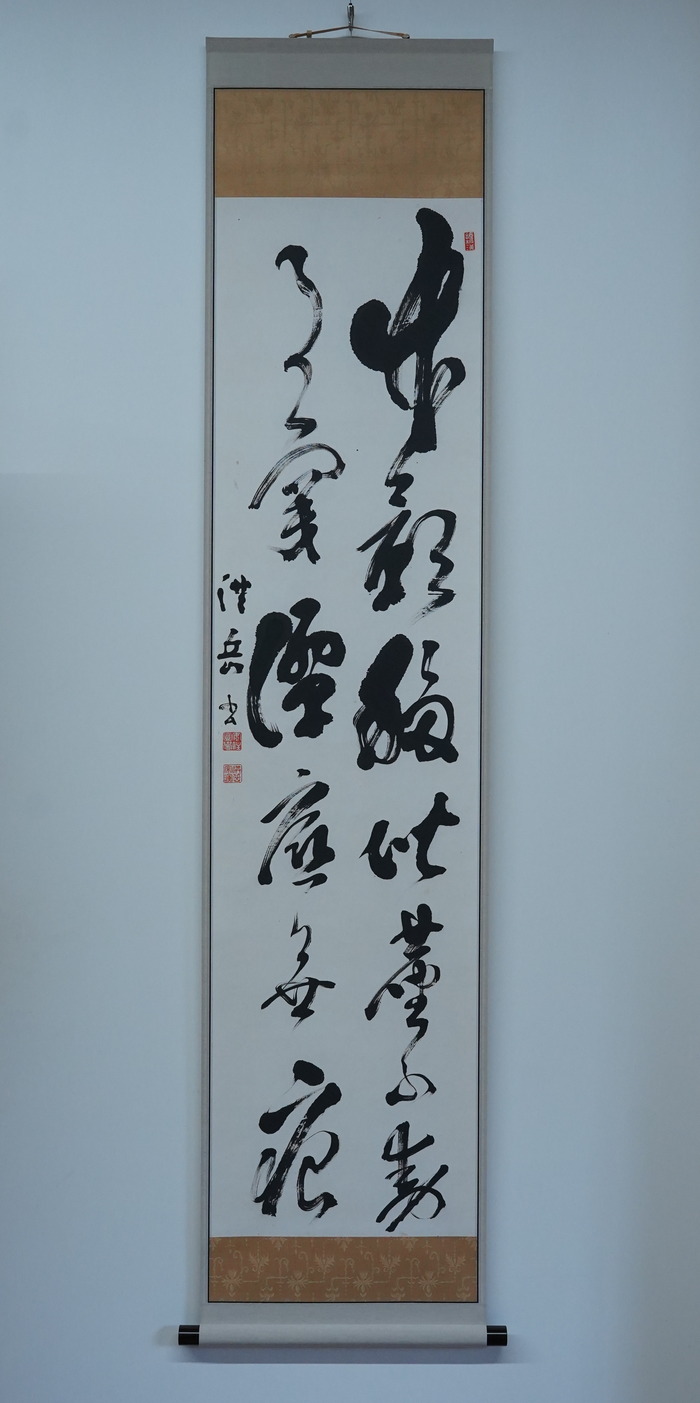 竹影掃階塵不動
月穿潭底無痕
洪岳書